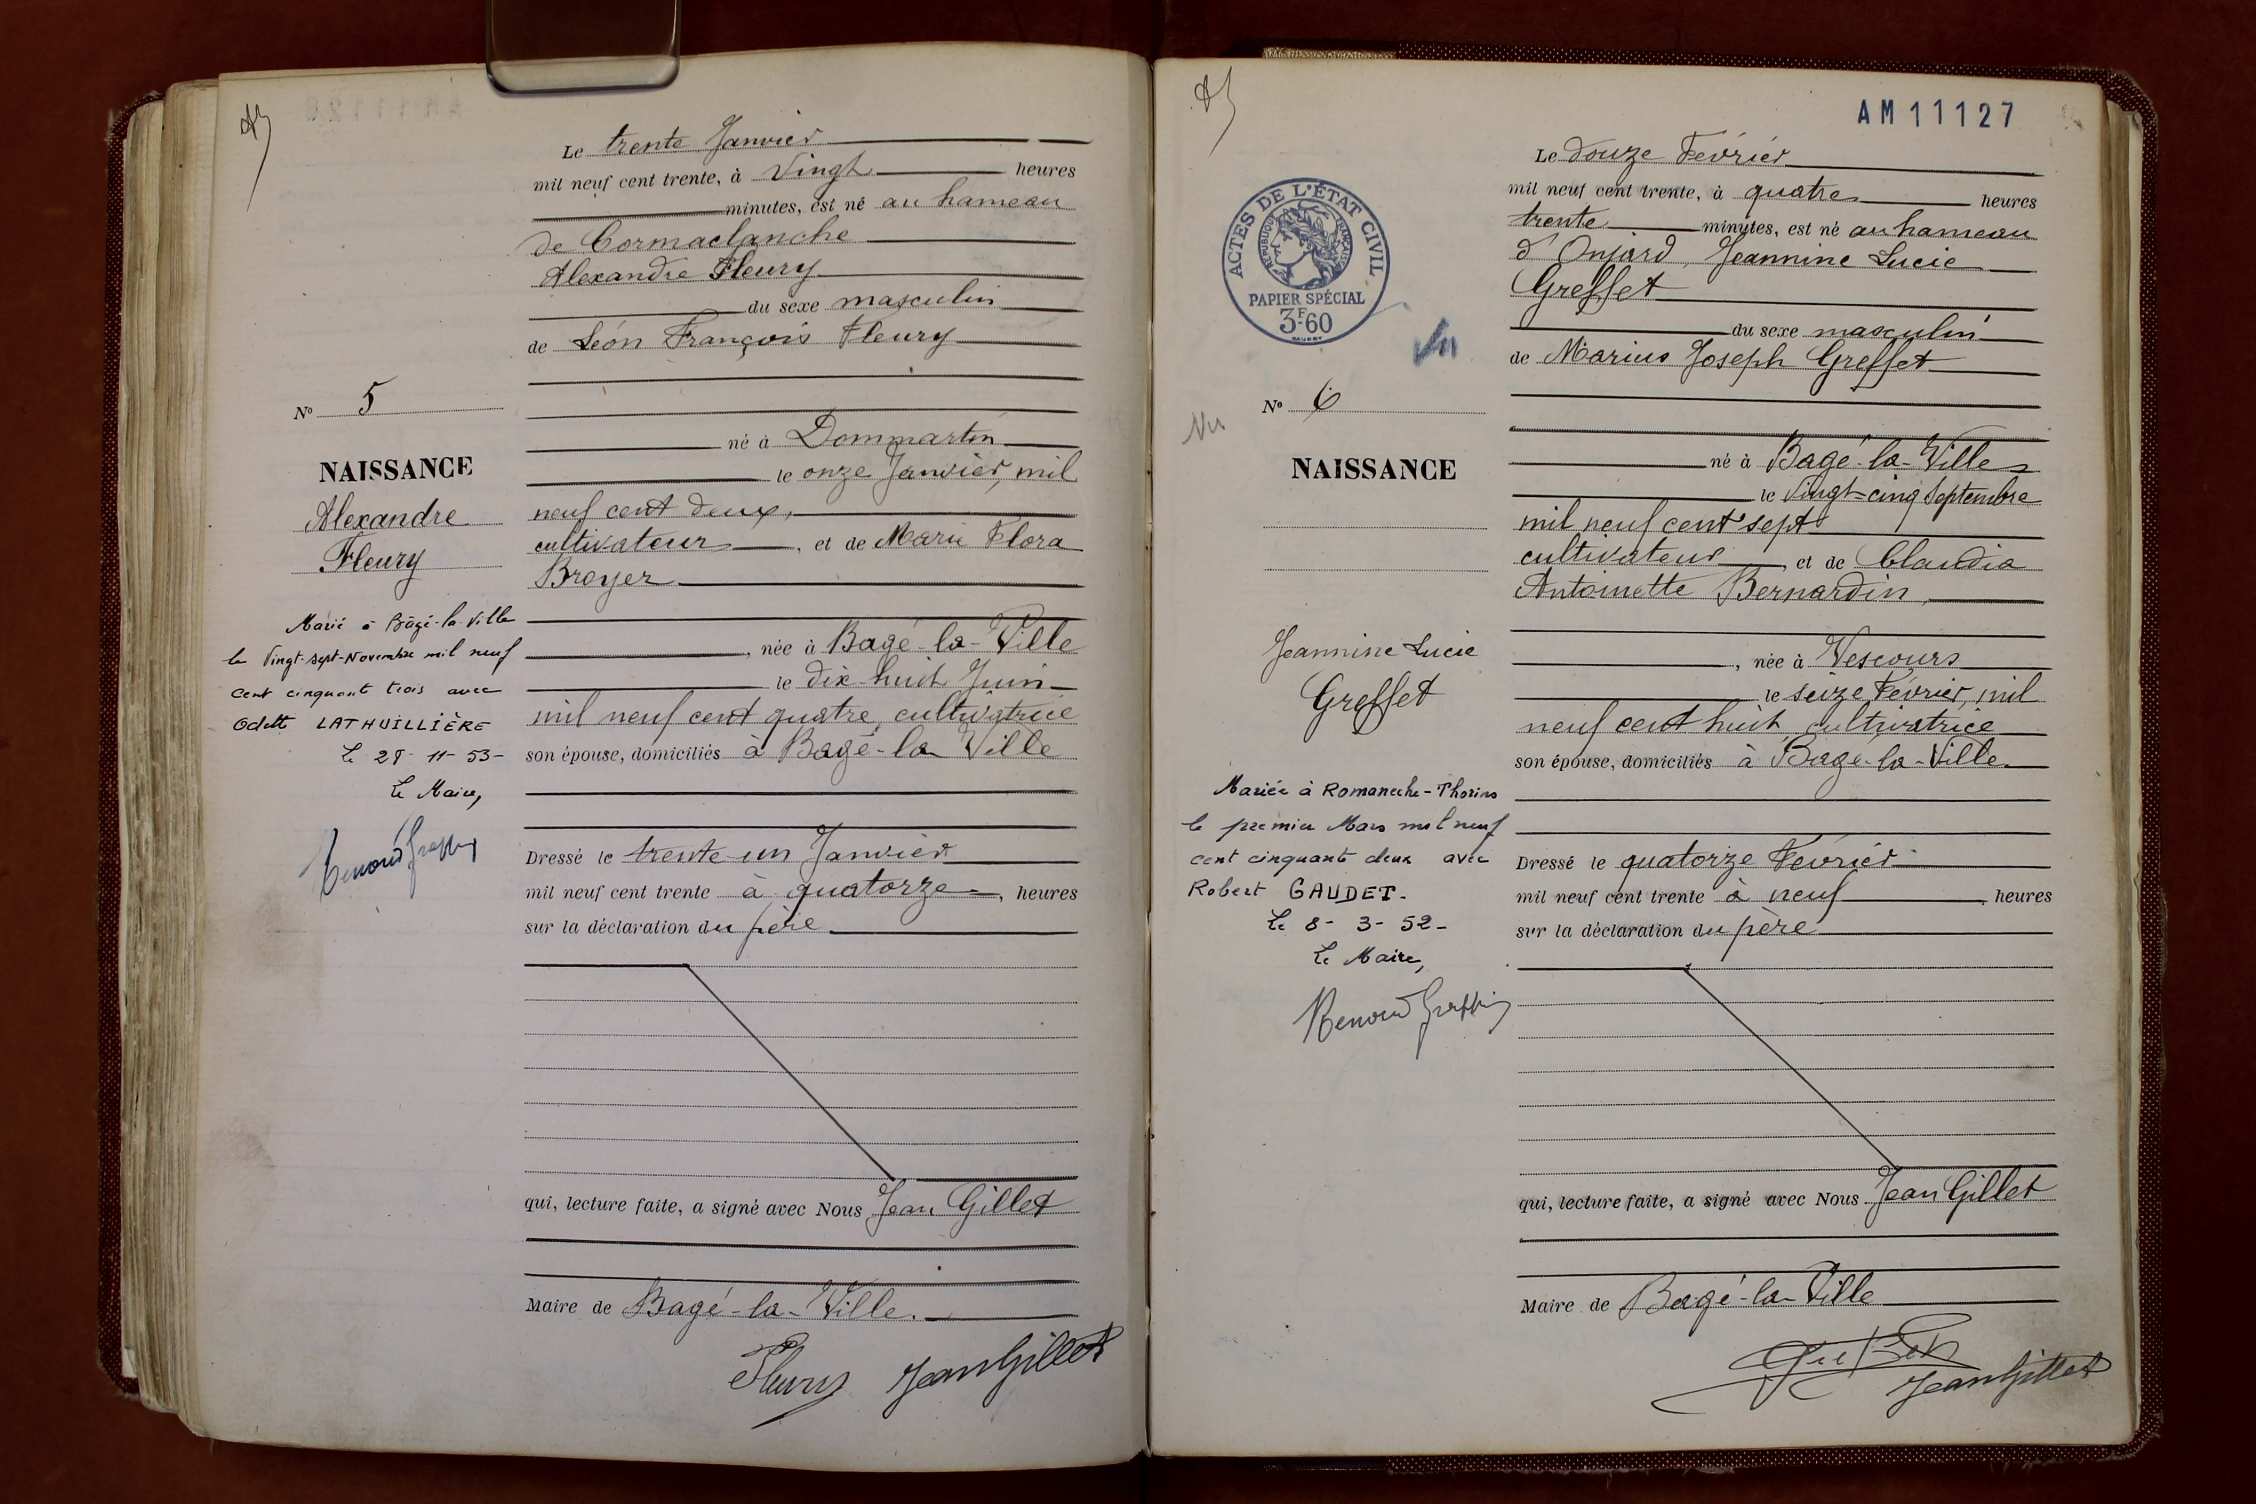 Le trente Janvier
mil neuf cent trente, à Vingt heures
minutes, est né au hameau
de Cormaclanche
Alexandre Fleury
du sexe masculin
de Léon François Fleury
né à Dommartin
le onze Janvier, mil
neuf cent deux,
cultivateur, et de Marie Flora
Broyer
, née à Bagé-la-Ville
le dix huit Juin
mil neuf cent quatre, cultivatrice
son épouse, domiciliés à Bagé-la Ville
Dressé le trente-un Janvier
mil neuf cent trente à quatorze, heures
sur la déclaration du père
qui, lecture faite, a signé avec Nous Jean Gillet
Maire de Bagé-la-Ville.
Fleury JeanGillet
No 5
NAISSANCE
Alexandre
Fleury
Marié à Bâgé-la-Ville
le Vingt-sept-Novembre mil neuf
cent cinquante trois avec
Odette LATHUILLIÈRE
Le 28-11-53-
Le Maire,
AM11127
Le douze Février
mil neuf cent trente, à quatre heures
trente minutes, est né au hameau
d'Onjard, Jeannine Lucie
Greffet
du sexe masculin
de Marius Joseph Greffet
né à Bagé-la-Ville
le Vingt-cinq Septembre
mil neuf cent sept
cultivateur, et de Claudia
Antoinette Bernardin,
, née à Vescours
le seize Février, mil
neuf cent huit, cultivatrice
son épouse, domiciliés à Bagé-la-Ville
Dressé le quatorze Février
mil neuf cent trente à neuf, heures
sur la déclaration du père
qui, lecture faite, a signé avec Nous Jean Gillet
Maire de Bagé-la-Ville
JeanGillet
ACTES DE L'ÉTAT CIVIL
RÉPUBLIQUE FRANÇAISE
PAPIER SPÉCIAL
3F60
Vu
No 6
Vu
NAISSANCE
Jeannine Lucie
Greffet
Mariée à Romaneche-Thorins
le premier Mars mil neuf
cent cinquante deux avec
Robert GAUDET.
Le 8-3-52-
Le Maire,